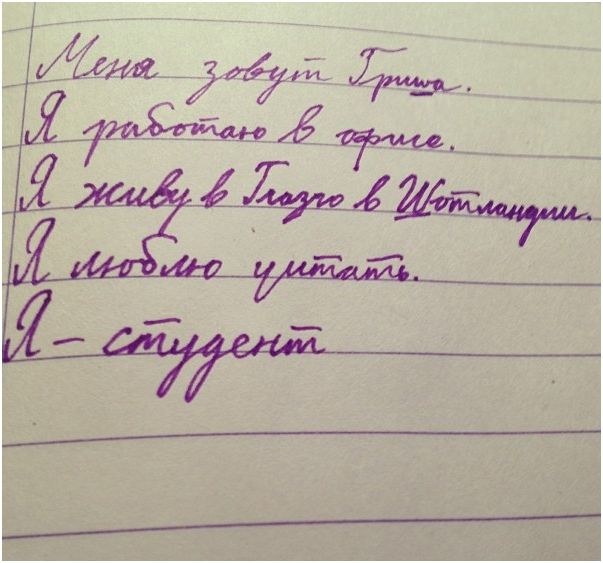 Меня зовут Гриша.
Я работаю в офисе.
Я живу в Глазго в Шотландии.
Я люблю читать.
Я – студент